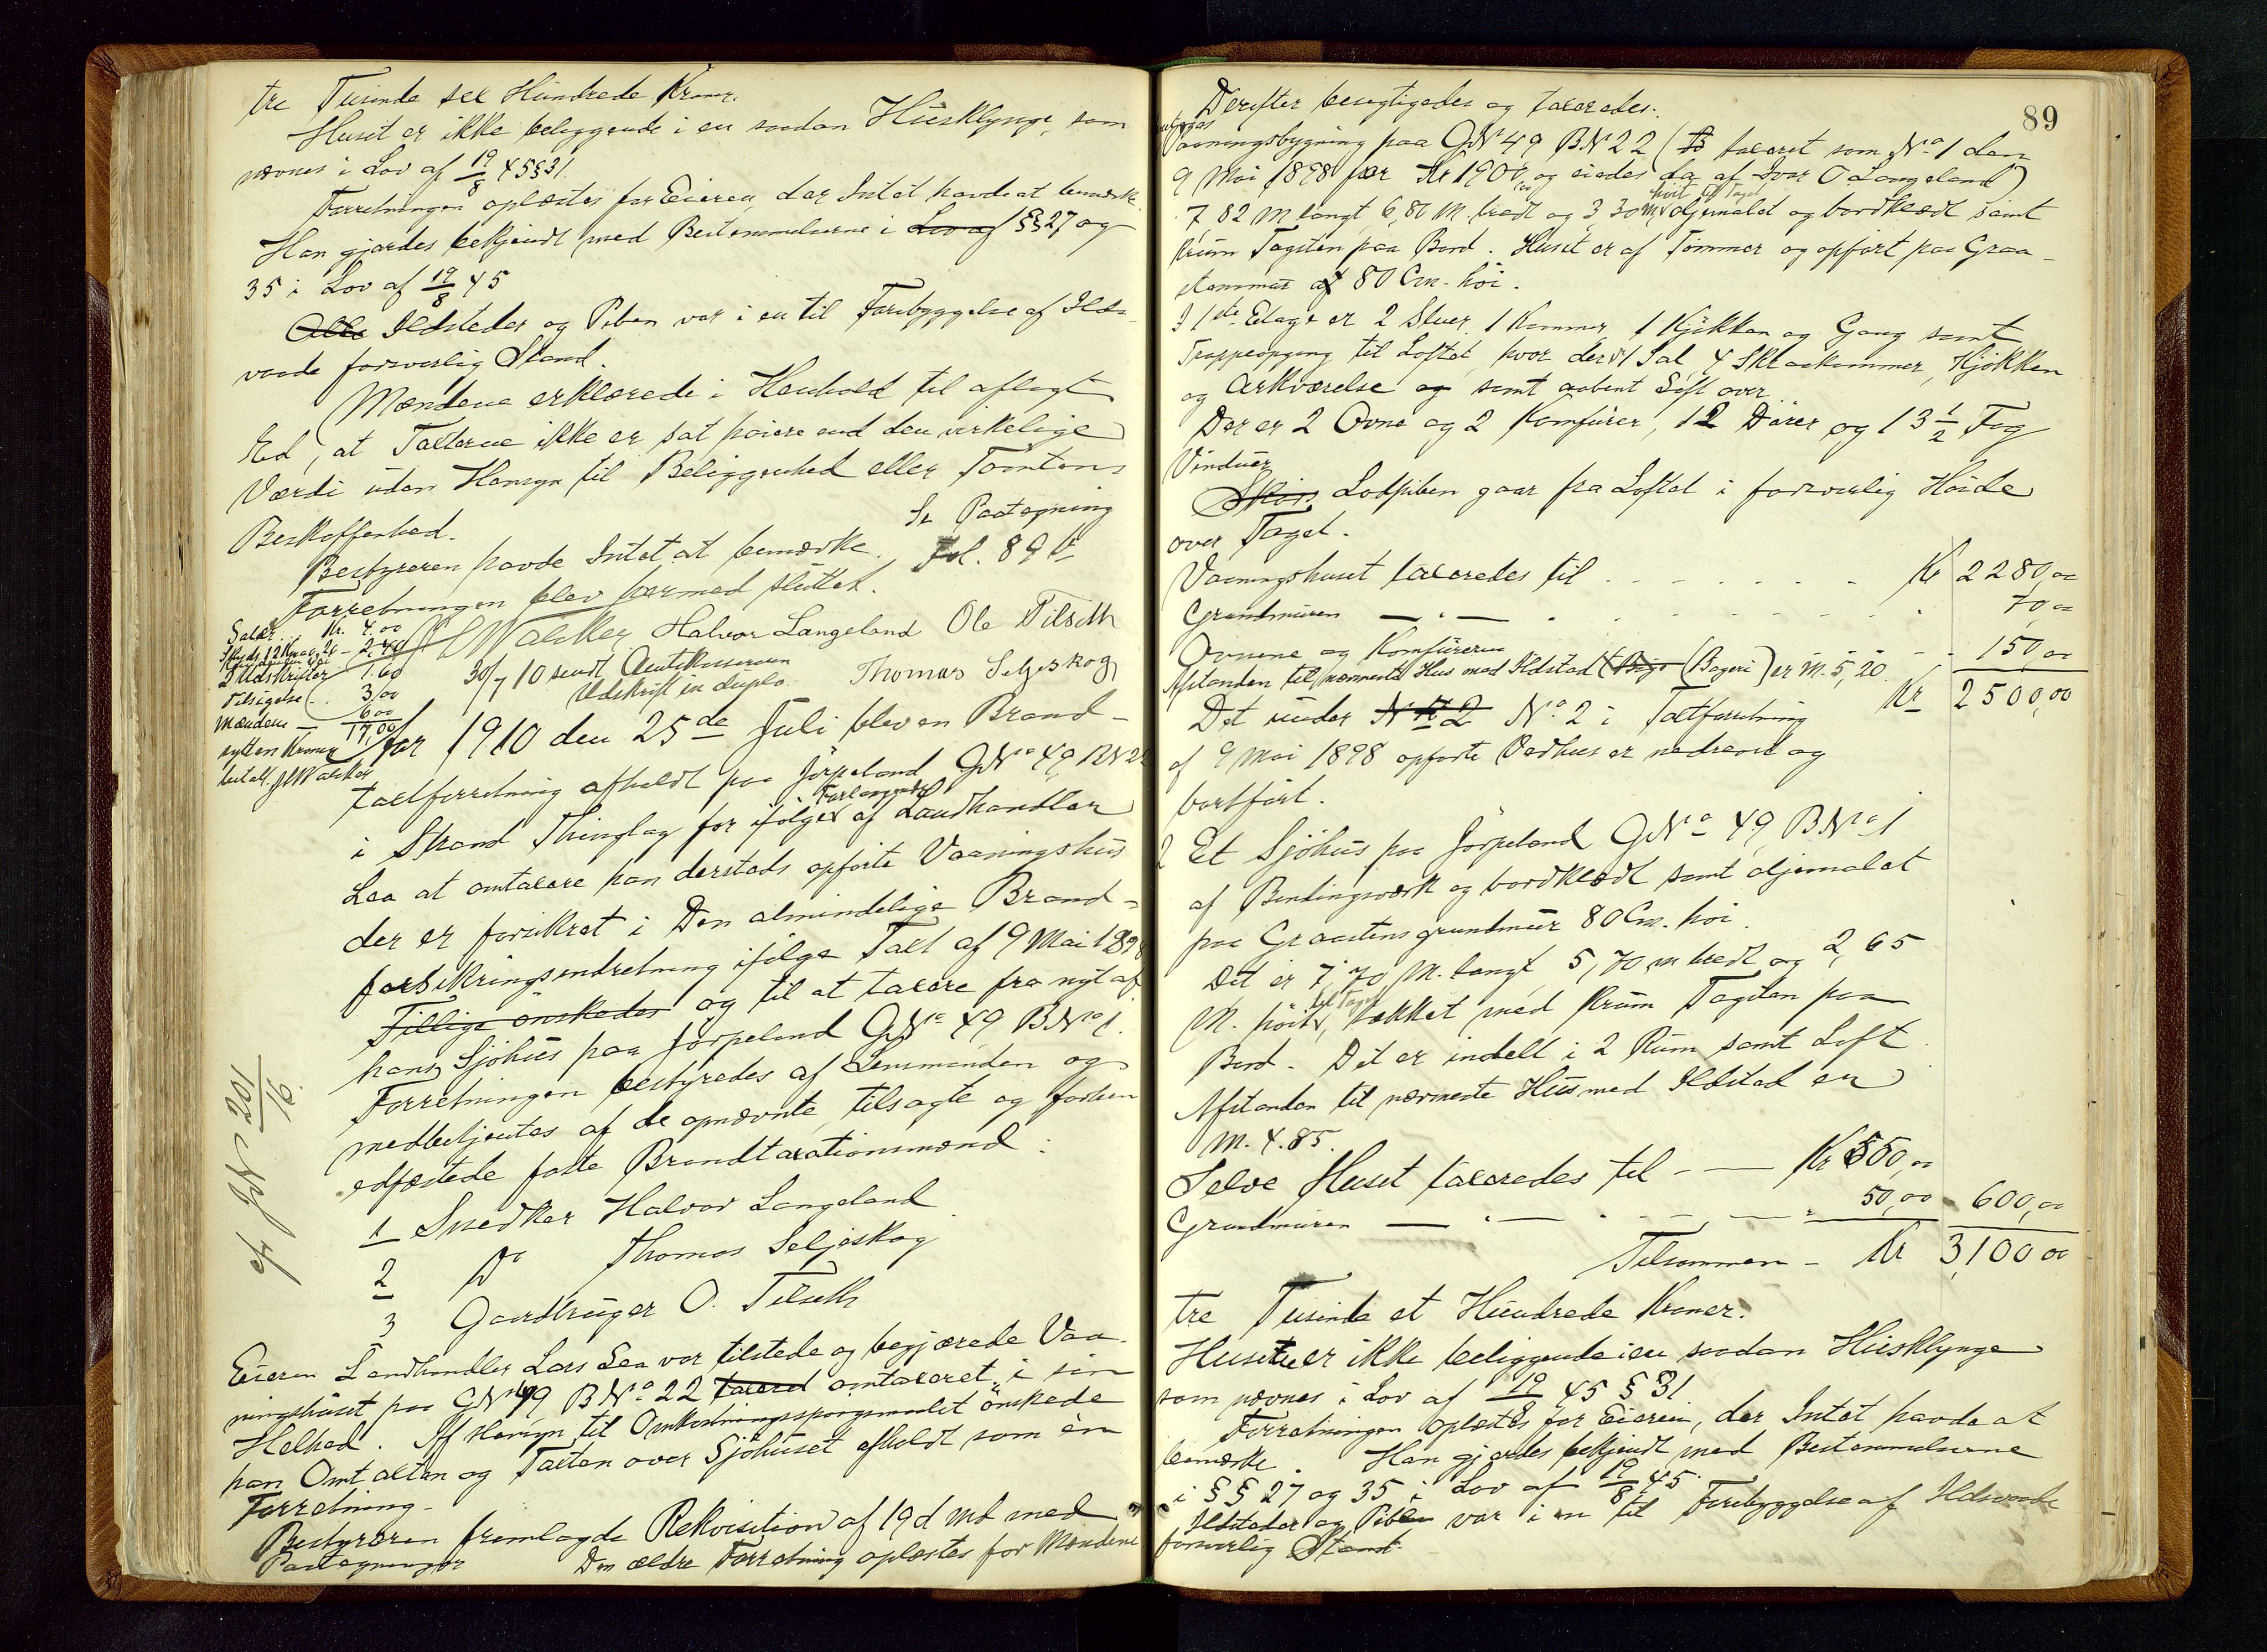 tre Tusinde sex Hundrede Kroner.
Huset er ikke beliggende i en saadan Husklynge, som
nævnes i Lov af 19/8 45 § 31.
Forretningen oplæstes for Eieren, der Intet havde at bemærke.
Han gjordes bekjendt med Bestemmelserne i Lov af §§ 27 og
35 i Lov af 19/8 45
Alle Ildsteder og Piben var i en til Forebyggelse af Ilds-
vaade forsvarlig Stand.
Mændene erklærede i Henhold til aflagt
Ed, at Taxterne ikke er sat høiere end den virkelige
Værdi uden Hensyn til Beliggenhed eller Tomtens
Beskaffenhed.
Se Paategning
Fol. 89 b
Bestyreren havde Intet at bemærke.
Forretningen blev hermed sluttet.
Halvor Langeland Ole Tilseth
Thomas Seljeskog
30/7 10 sendt Amtskassereren
Udskrift in duplo.
Salær... Kr. 4.00
2.40
2 Udskrifter 1.60
Tilsigelse 3,00
Mændene — 6.00
17,00
sytten Kroner
betalt.
Aar 1910 den 25de Juli blev en Brand-
taxtforretning afholdt paa Jørpeland GNo 49 BN 22
i Strand Thinglag for ifølge Forlangende af Landhandler
Lea at omtaxere han derstads opførte Vaaningshus
der er forsikret i Den almindelige Brand-
forsikringsindretning ifølge Taxt af 9 Mai 1898
Tillige ønskedes og til at taxere fra nyt af
hans Sjøhus paa Jørpeland GNo 49 BNo 1.
Forretningen bestyredes af Lensmanden og
medbetjentes af de opnævnte, tilsagte og forhen
edfæstede faste Brandtaxationsmænd:
1 Snedker Halvor Langeland
2 Do Thomas Seljeskog
3 Gaardbruger O. Tilseth
cfr JN 201/16.
Eieren Landhandler Lars Lea var tilstede og begjærede Vaa-
ningshuset paa GN 49 BNo 22 taxeret omtaxeret i sin
Helhed. Af Hensyn til Omkostningsspørgsmaalet ønskede
han Omtaxten og Taxten over Sjøhuset afholdt som én
Forretning.
Bestyreren fremlagde Rekvisition af 19 d. Md med
Paategninger Den ældre Forretning oplæstes for Mændene
89
Derefter besigtigedes og taxeredes:
Vaaningsbygning paa GN 49 BN 22 (taxeret som No 1 den
9 Mai 1898 for Kr 1900,00 og eiedes da af Ivar O. Langeland)
7,82 M langt, 6,80 M. bredt og 3,30 M høit til Taget, oljemalet og bordklædt samt
krum Tagsten paa Bord. Huset er af Tømmer og opført paa Graa-
stensmur af 80 Cm. høi.
I 1ste Etage er 2 Stuer, 1 Kammer, 1 Kjøkken og Gang samt
Trappeopgang til Loftet, hvor der er 1 Sal, 4 Skraakammer, Kjøkken
og Arkværelse og samt aabent Loft over.
Der er 2 Ovne og 2 Komfurer, 12 Dører og 13 1/2 Fag
Vinduer
Skors Lodpiben gaar fra Loftet i forsvarlig Høide
over Taget.
Vaaningshuset taxeredes til . . . Kr 2280,00
Grundmuren — " — 70,00
Ovnene og Komfurerne 150,00
Afstanden til nærmeste Hus med Ildsted (Bryg (Bageri) er M. 5,20. Kr 2500,00
Det under N 2 No 2 i Taxtforretning
af 9 Mai 1898 opførte Vedhus er nedrevet og
bortført.
2 Et Sjøhus paa Jørpeland GNo 49, BNo 1
af Bindingsværk og bordklædt samt oljemalet
paa Graastensgrundmur 80 Cm. høi.
Det er 7,70 M. langt, 5,70 m bredt og 2,65
M. høit til Taget, tækket med krum Tagsten paa
Bord. Det er indelt i 2 Rum samt Loft.
Afstanden til nærmeste Hus med Ildsted er
M. 4.85.
Selve Huset taxeredes til — Kr 550,00
Grundmuren — " — 50,00 600,00
Tilsammen — Kr 3,100 00
tre Tusinde et Hundrede Kroner.
Husene er ikke beliggende i en saadan Husklynge
som nævnes i Lov af 19/8 45 § 31
Forretningen oplæstes for Eieren, der Intet havde at
bemærke. Han gjordes bekjendt med Bestemmelserne
i §§ 27 og 35 i Lov af 19/8 45.
Ildsteder og Piben var i en til Forebyggelse af Ildsvaade
forsvarlig Stand